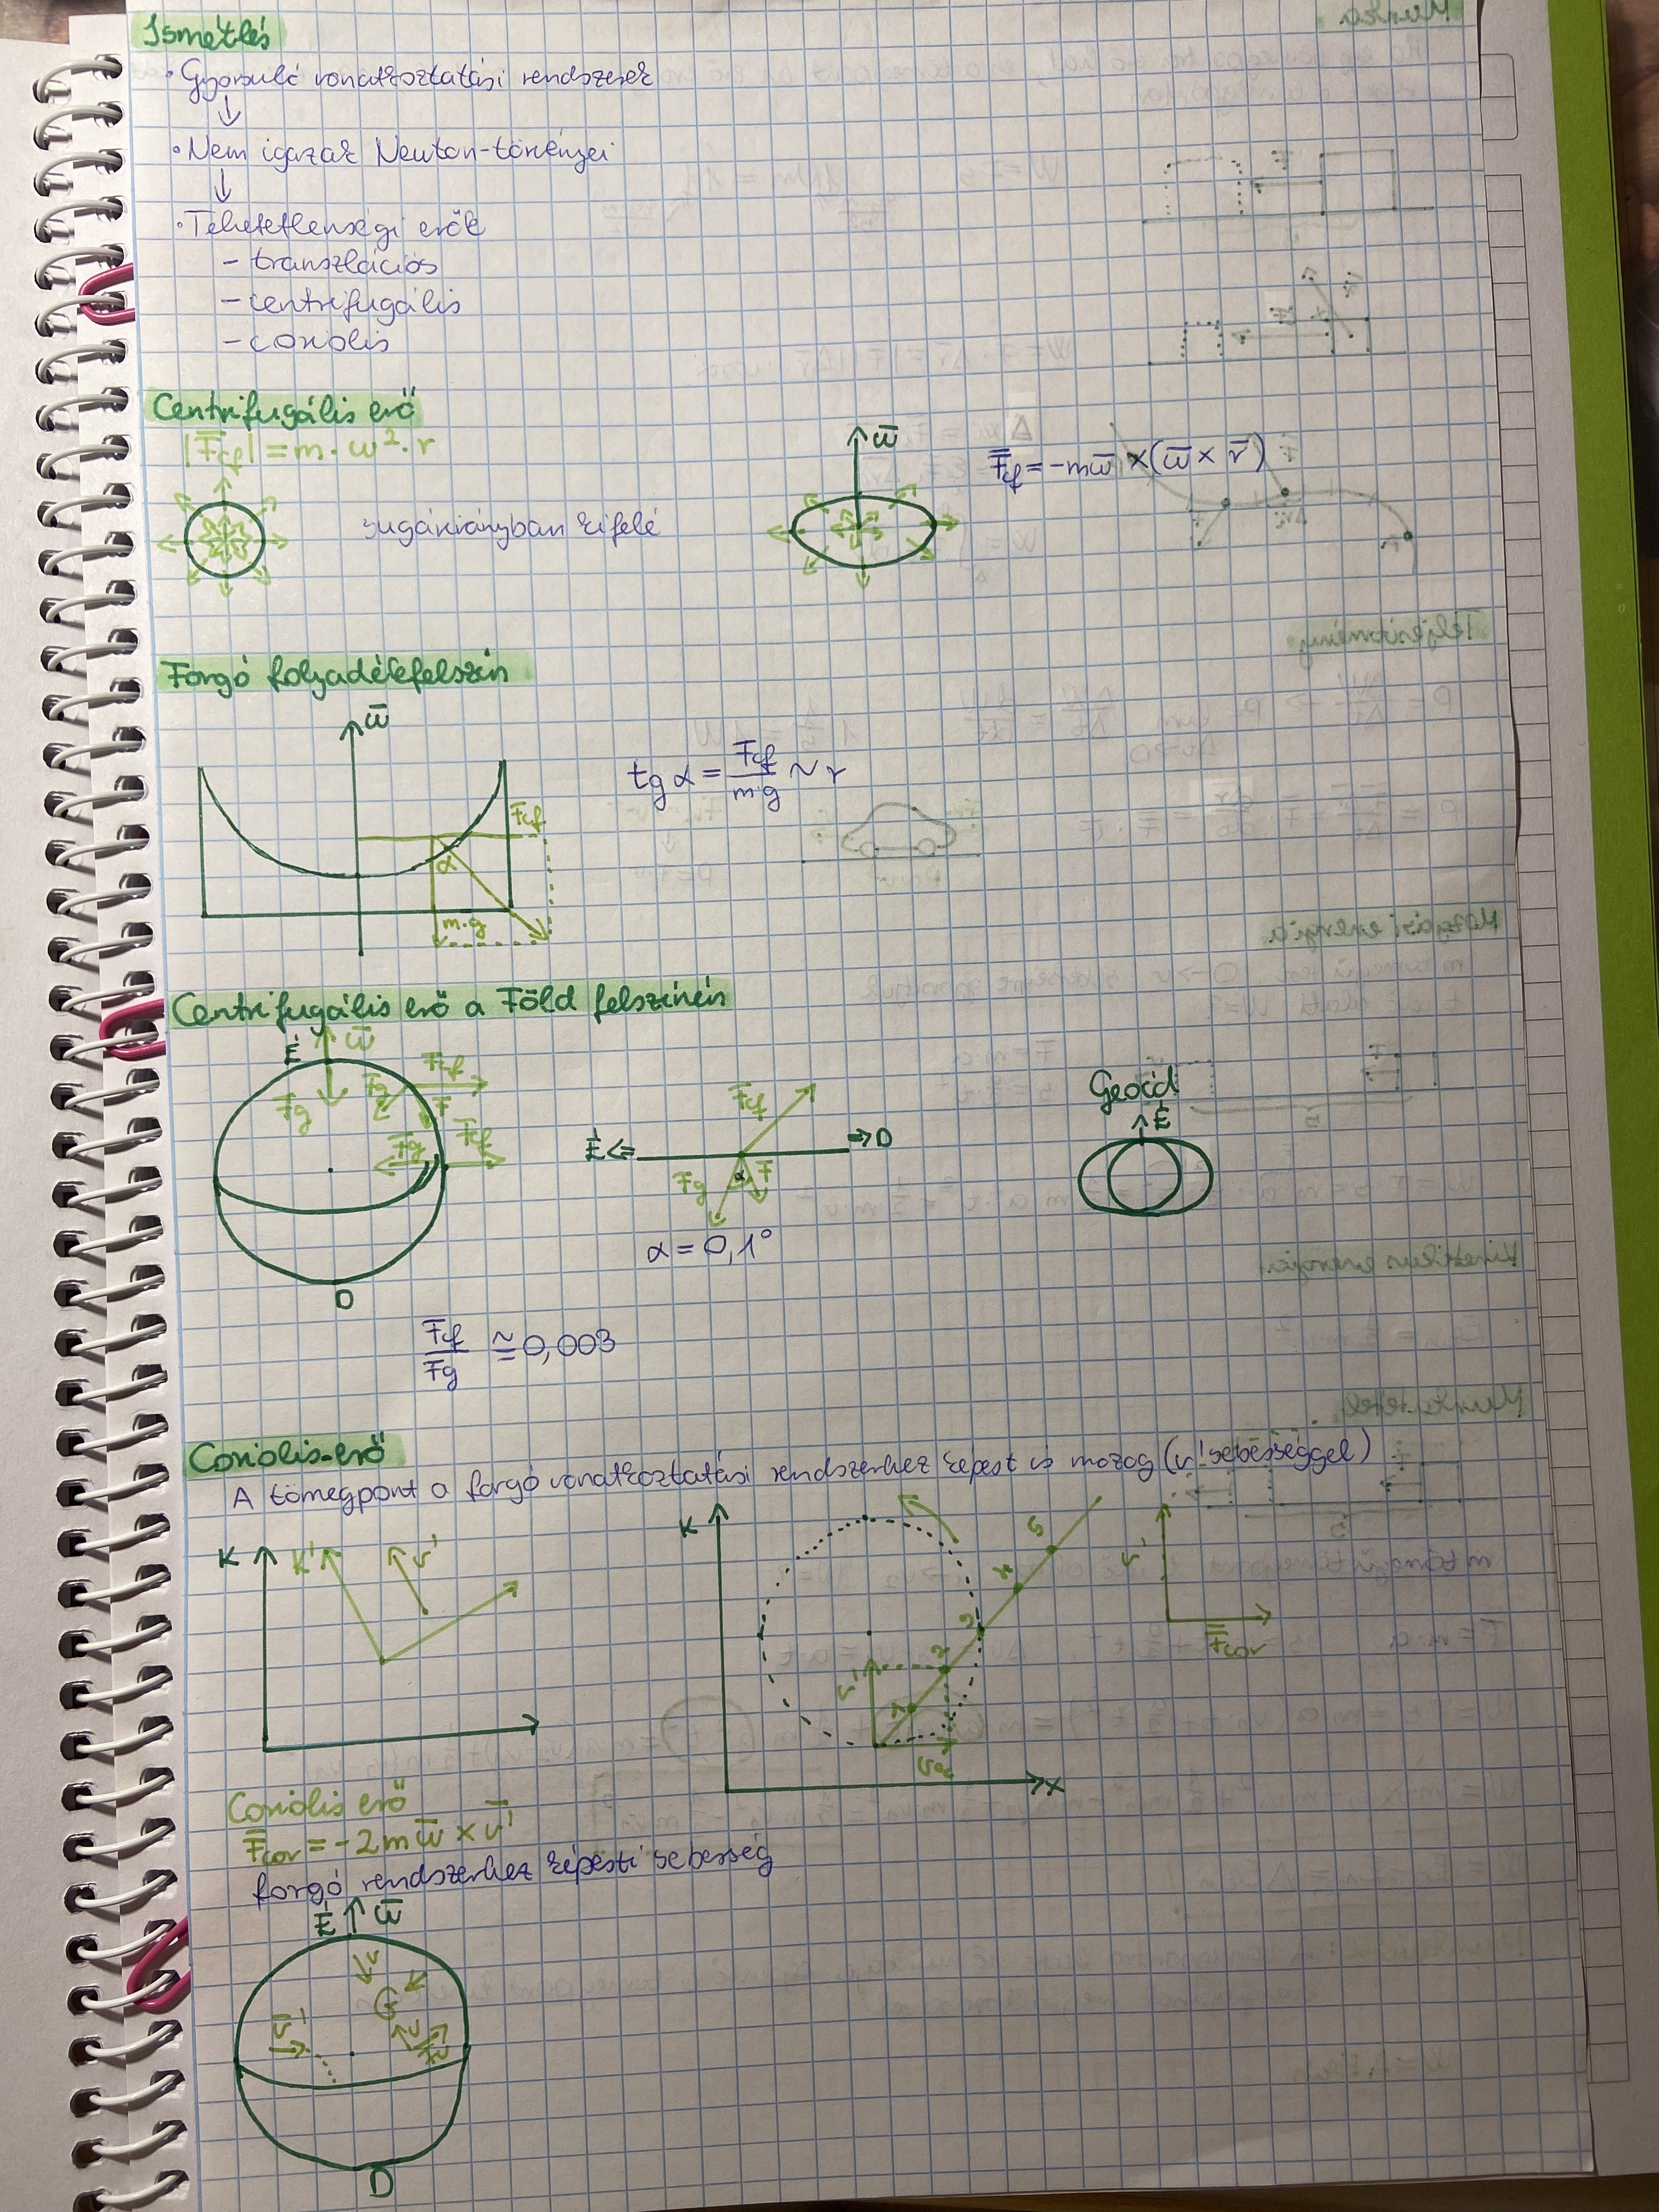 Ismétlés
• Gyorsuló vonatkoztatási rendszerek
↓
• Nem igazak Newton-törvényei
↓
• Tehetetlenségi erők
- transzlációs
- centrifugális
- coriolis
Centrifugális erő
|F̅cf| = m · ω² · r
sugárirányban kifelé
ω̅
F̅cf = -mω̅ × (ω̅ × r̅)
Forgó folyadékfelszín
ω̅
tg α = Fcf / m·g ~ r
F̅cf
α
m·g
Centrifugális erő a Föld felszínén
É ω̅
F̅g F̅g F̅cf
F̅
F̅g F̅cf
D
É <= F̅cf => D
F̅g α F̅
α = 0,1°
Geoid
↑ É
F̅cf / F̅g ≅ 0,003
Coriolis-erő
A tömegpont a forgó vonatkoztatási rendszerhez képest is mozog (v' sebességgel)
K K' v'
K
1 2 3 4 5
v'
x
v'
F̅cor
Coriolis erő
F̅cor = -2mω̅ × v̅'
forgó rendszerhez képesti sebesség
É ↑ ω̅
v
v̅'
v
D